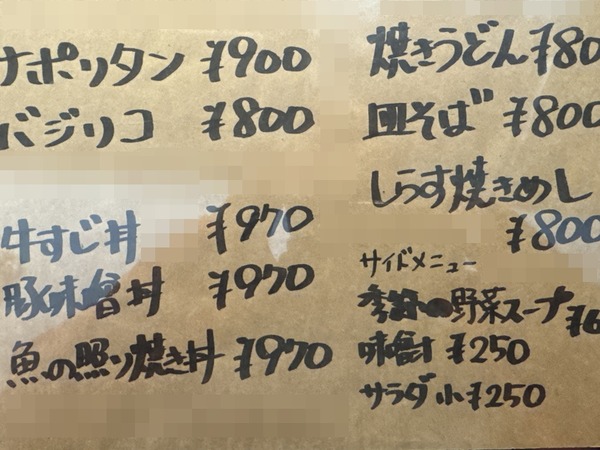 ナポリタン ¥900
バジリコ ¥800
牛すじ丼 ¥970
豚味噌丼 ¥970
魚の照り焼き丼 ¥970
焼きうどん ¥80
皿そば ¥800
しらす焼きめし
¥800
サイドメニュー
季節の野菜スープ ¥6
味噌汁 ¥250
サラダ小 ¥250